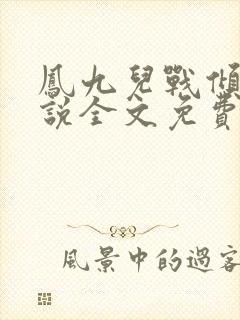 鳳九兒戰傾
說全文免費
風景中的過客